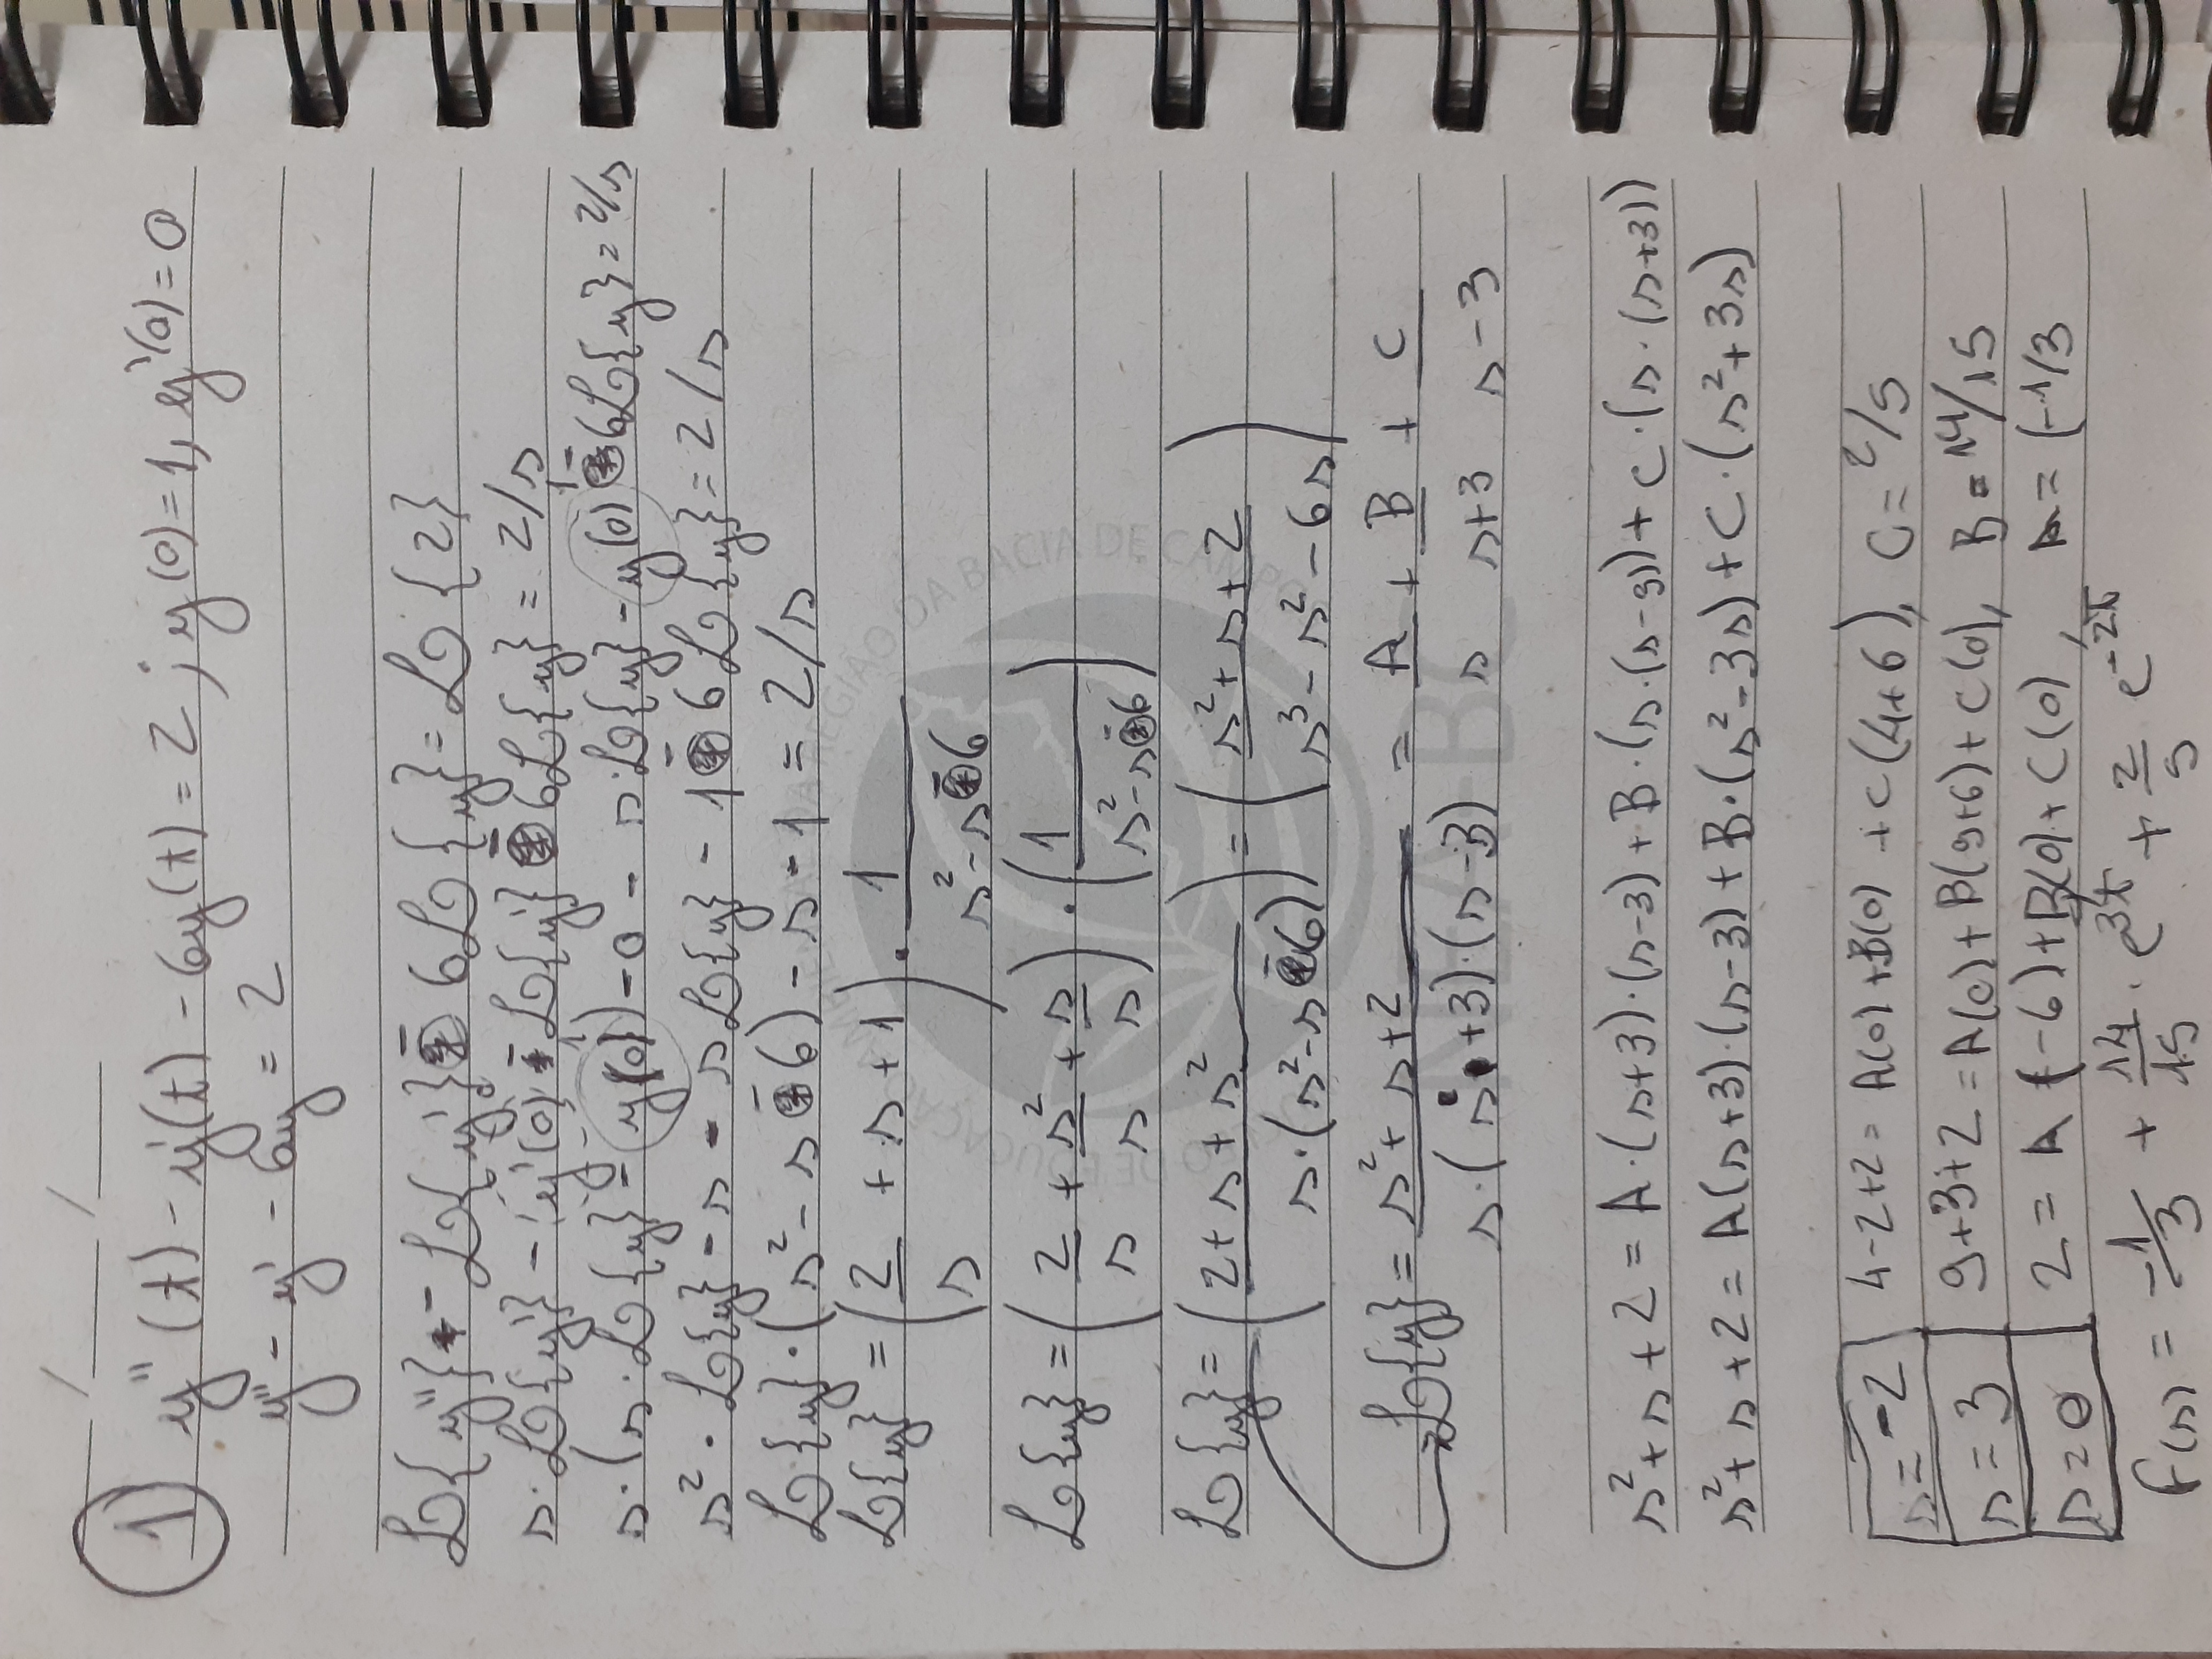 ___/___/___
1 y''(t) - y'(t) - 6y(t) = 2 ; y(0) = 1, y'(0) = 0
y'' - y' - 6y = 2
ℒ{y''} - ℒ{y'} - 6ℒ{y} = ℒ{2}
s·ℒ{y'} - y'(0) - ℒ{y'} - 6ℒ{y} = 2/s
s·(s·ℒ{y} - y(0)) - 0 - s·ℒ{y} - y(0) - 6ℒ{y} = 2/s
s²·ℒ{y} - s - sℒ{y} - 1 - 6ℒ{y} = 2/s
ℒ{y}·(s² - s - 6) - s - 1 = 2/s
ℒ{y} = (2/s + s + 1) · 1/(s² - s - 6)
ℒ{y} = (2/s + s²/s + s/s) · (1/(s² - s - 6))
ℒ{y} = ((2 + s + s²)/(s·(s² - s - 6))) = ((s² + s + 2)/(s³ - s² - 6s))
ℒ{y} = (s² + s + 2)/(s·(s + 3)·(s - 3)) = A/s + B/(s+3) + C/(s-3)
s² + s + 2 = A·(s+3)·(s-3) + B·(s·(s-3)) + C·(s·(s+3))
s² + s + 2 = A(s+3)·(s-3) + B·(s² - 3s) + C·(s² + 3s)
s = -2 4-2+2 = A(0) + B(0) + C(4+6), C = 2/5
s = 3 9+3+2 = A(0) + B(9+6) + C(0), B = 14/15
s = 0 2 = A(-6) + B(0) + C(0), A = (-1/3
F(s) = -1/3 + 14/15 · e^3t + 2/5 e^-2t
NEA-BC